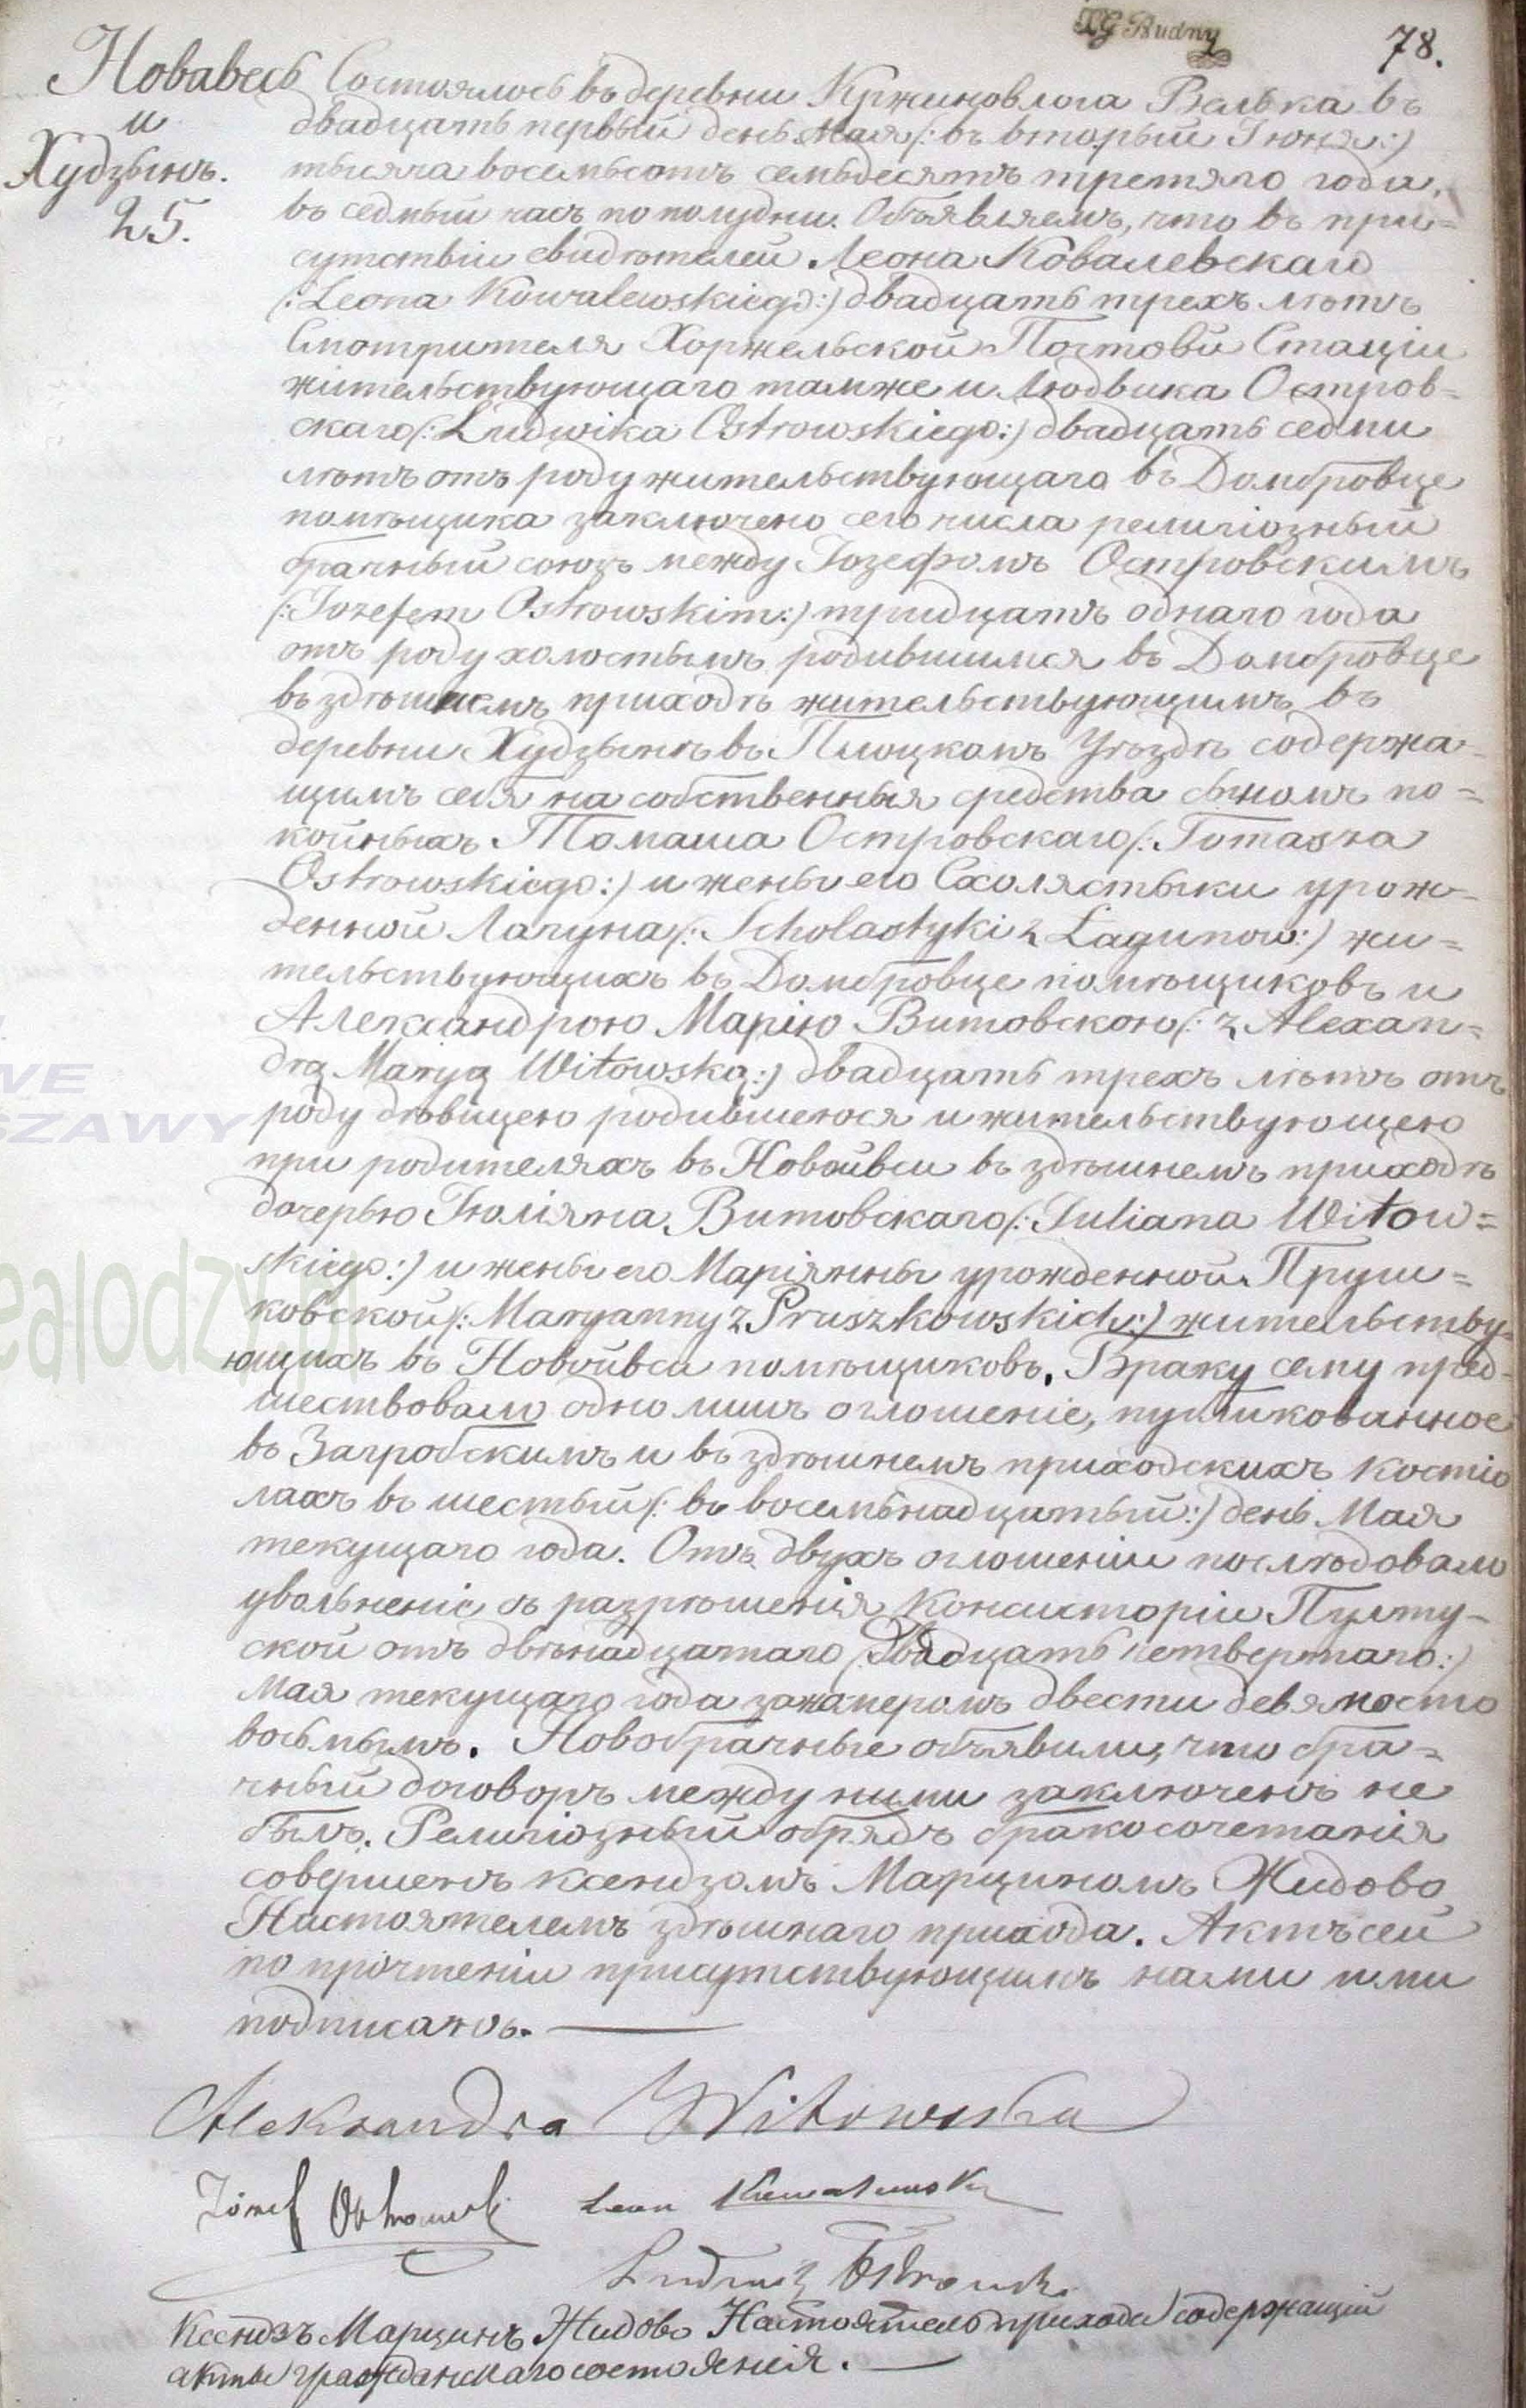 XG Budny
78.
Новавесь
и
Худзынъ.
25.
Состоялось въ деревни Кржиновлога Велька въ
двадцать первый день Мая (: въ вторый Іюня :)
тысяча восемьсотъ семьдесятъ третяго года,
въ седмый часъ по полудни. Объявляемъ, что въ при=
сутствіи свидѣтелей Леона Ковалевскаго
(: Leona Kowalewskiego :) двадцать трехъ лѣтъ
Смотрителя Хоржельской Почтовой Стаціи
жительствующаго тамже и Людвика Остров=
скаго (: Ludwika Ostrowskiego :) двадцать седми
лѣтъ отъ роду жительствующаго въ Домбровце
помѣщика заключено сего числа религіозный
брачный союзъ между Іозефомъ Островскимъ
(: Jozefem Ostrowskim :) тридцать однаго года
отъ роду холостымъ родившимся въ Домбровце
въ здѣшнемъ приходѣ жительствующимъ въ
деревни Худзынѣ въ Плоцкомъ Уѣздѣ содержа=
щимъ себя на собственныя средства сыномъ по=
койныхъ Томаша Островскаго (: Tomasza
Ostrowskiego :) и жены его Схолястыки урож=
денной Лагуна (: Scholastyki z Łagunow :) жи=
тельствующихъ въ Домбровце помѣщиковъ и
Александрою Марію Витовскою (: z Alexan=
drą Maryą Witowską :) двадцать трехъ лѣтъ отъ
роду дѣвицею родившеюся и жительствующею
при родителяхъ въ Новейвси въ здѣшнемъ приходѣ
дочерью Іюліяна Витовскаго (: Juliana Witow=
skiego :) и жены его Маріянны урожденной Пруш=
ковской (: Maryanny z Pruszkowskich :) жительству=
ющихъ въ Новойвси помѣщиковъ. Браку сему пред=
шествовало одно лишь оглошеніе, публикованное
въ Загробскимъ и въ здѣшнемъ приходскихъ костіо
лахъ въ шестый (: въ восемьнадцатый :) день Мая
текущаго года. Отъ двухъ оглошеніи послѣдовало
увольненіе съ разрѣшенія Консисторіи Пулту=
ской отъ двѣнадцатаго (: Двадцать четвертаго :)
Мая текущаго года за номеромъ двести девяносто
восьмымъ. Новобрачные объявили, что бра=
чный договоръ между ними заключенъ не
былъ. Религіозный обрядъ бракосочетанія
совершенъ ксендзомъ Марциномъ Жидово
Настоятелемъ здѣшнаго прихода. Актъ сей
по прочтеніи присутствующимъ нами ими
подписанъ.
Aleksandra Witowska
Józef Ostrowski Leon Kowalewski
Ludwik Ostrowski
Ксендзъ Марцинъ Жидово Настоятель прихода содержащій
акты гражданскаго состоянія.